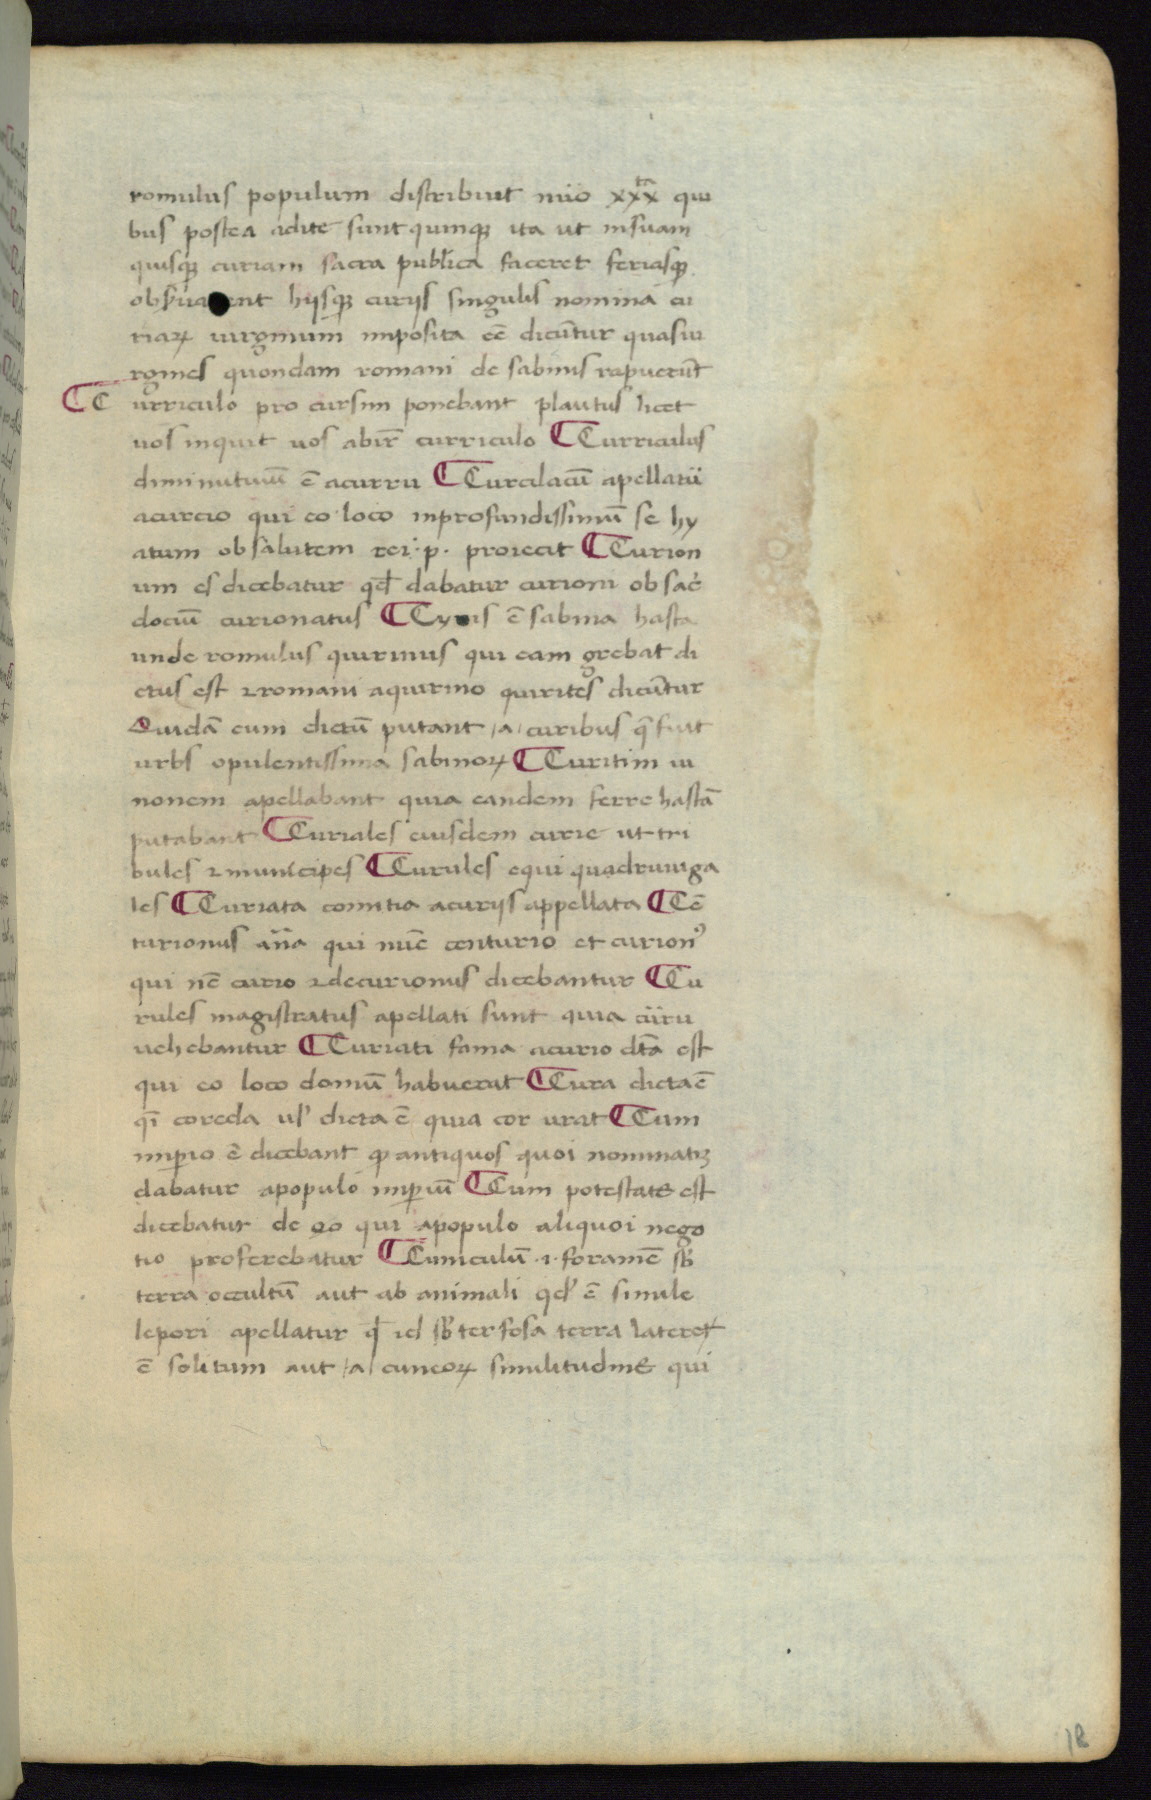 romulus populum distribuit nũo xxx^ta qui
bus postea adite sunt quinqꝫ ita ut insuam
quisqꝫ curiam sacra publica faceret feriasqꝫ
hijsqꝫ curijs singulis nomina cu
riaꝝ uirginum imposita eē dicũtur quas ui
rgines quondam romani de sabinis rapuerũt
¶ C urriculo pro cursim ponebant plautus licet
uos inquit uos abir̃ curriculo ¶ Curriculus
diminutiuũ ē acurru ¶ Curcilacũ apellatũ
acurcio qui eo loco inprofundissimũ se hy
atum ob salutem rei·p· proiecit ¶ Curion
um es dicebatur qđ dabatur curioni ob sac̃
dociũ curionatus ¶ ē sabina hasta
unde romulus quirinus qui eam gerebat di
ctus est ⁊ romani aquirino quirites dicũtur
Quidã eum dictũ putant /a/ curibus q̃ fuit
urbs opulentissima sabinoꝝ ¶ Curitim iu
nonem apellabant quia eandem ferre hastã
putabant ¶ Curiales eiusdem curie ut tri
bules ⁊ municipes ¶ Curules equi quadruuiga
les ¶ Curiata comitia acurijs appellata ¶ Cẽ
turionus añа qui nũc centurio et curionꝰ
qui nc̃ curio ⁊ decurionus dicebantur ¶ Cu
rules magistratus apellati sunt quia cũrru
uehebantur ¶ Curiati fama acurio dc̃a est
qui eo loco domũ habuerat ¶ Cura dicta ē
q̃i coreda ul' dicta ē quia cor urat ¶ Cum
imꝑio ē dicebant ꝓ antiquos quoi nominatĩ
dabatur apopulo imꝑiũ ¶ Cum potestate est
dicebatur de eo qui apopulo aliquoi nego
tio proferebatur ¶ Cuniculũ ·i· foramẽ sb̃
terra occultũ aut ab animali qd' ē simile
lepori apellatur qđ id sb̃ter fosa terra lateret
ē solitum aut /a/ cuneoꝝ similitudine qui
18